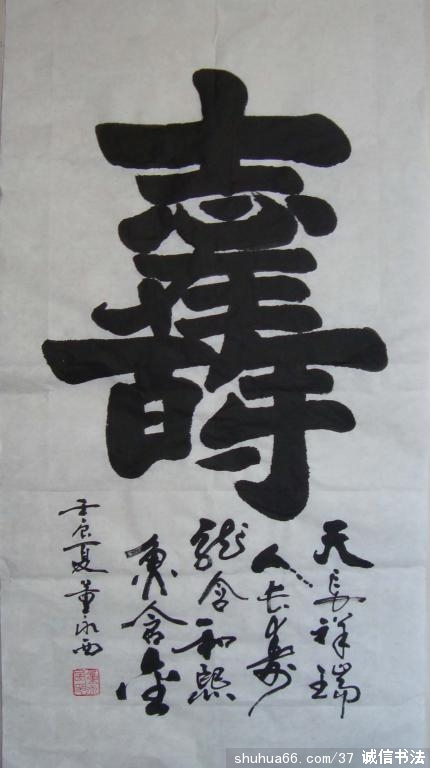 壽
天祥瑞
人长寿
龍含和熙
含金
壬辰夏董永西
shuhua66.com/37 诚信书法